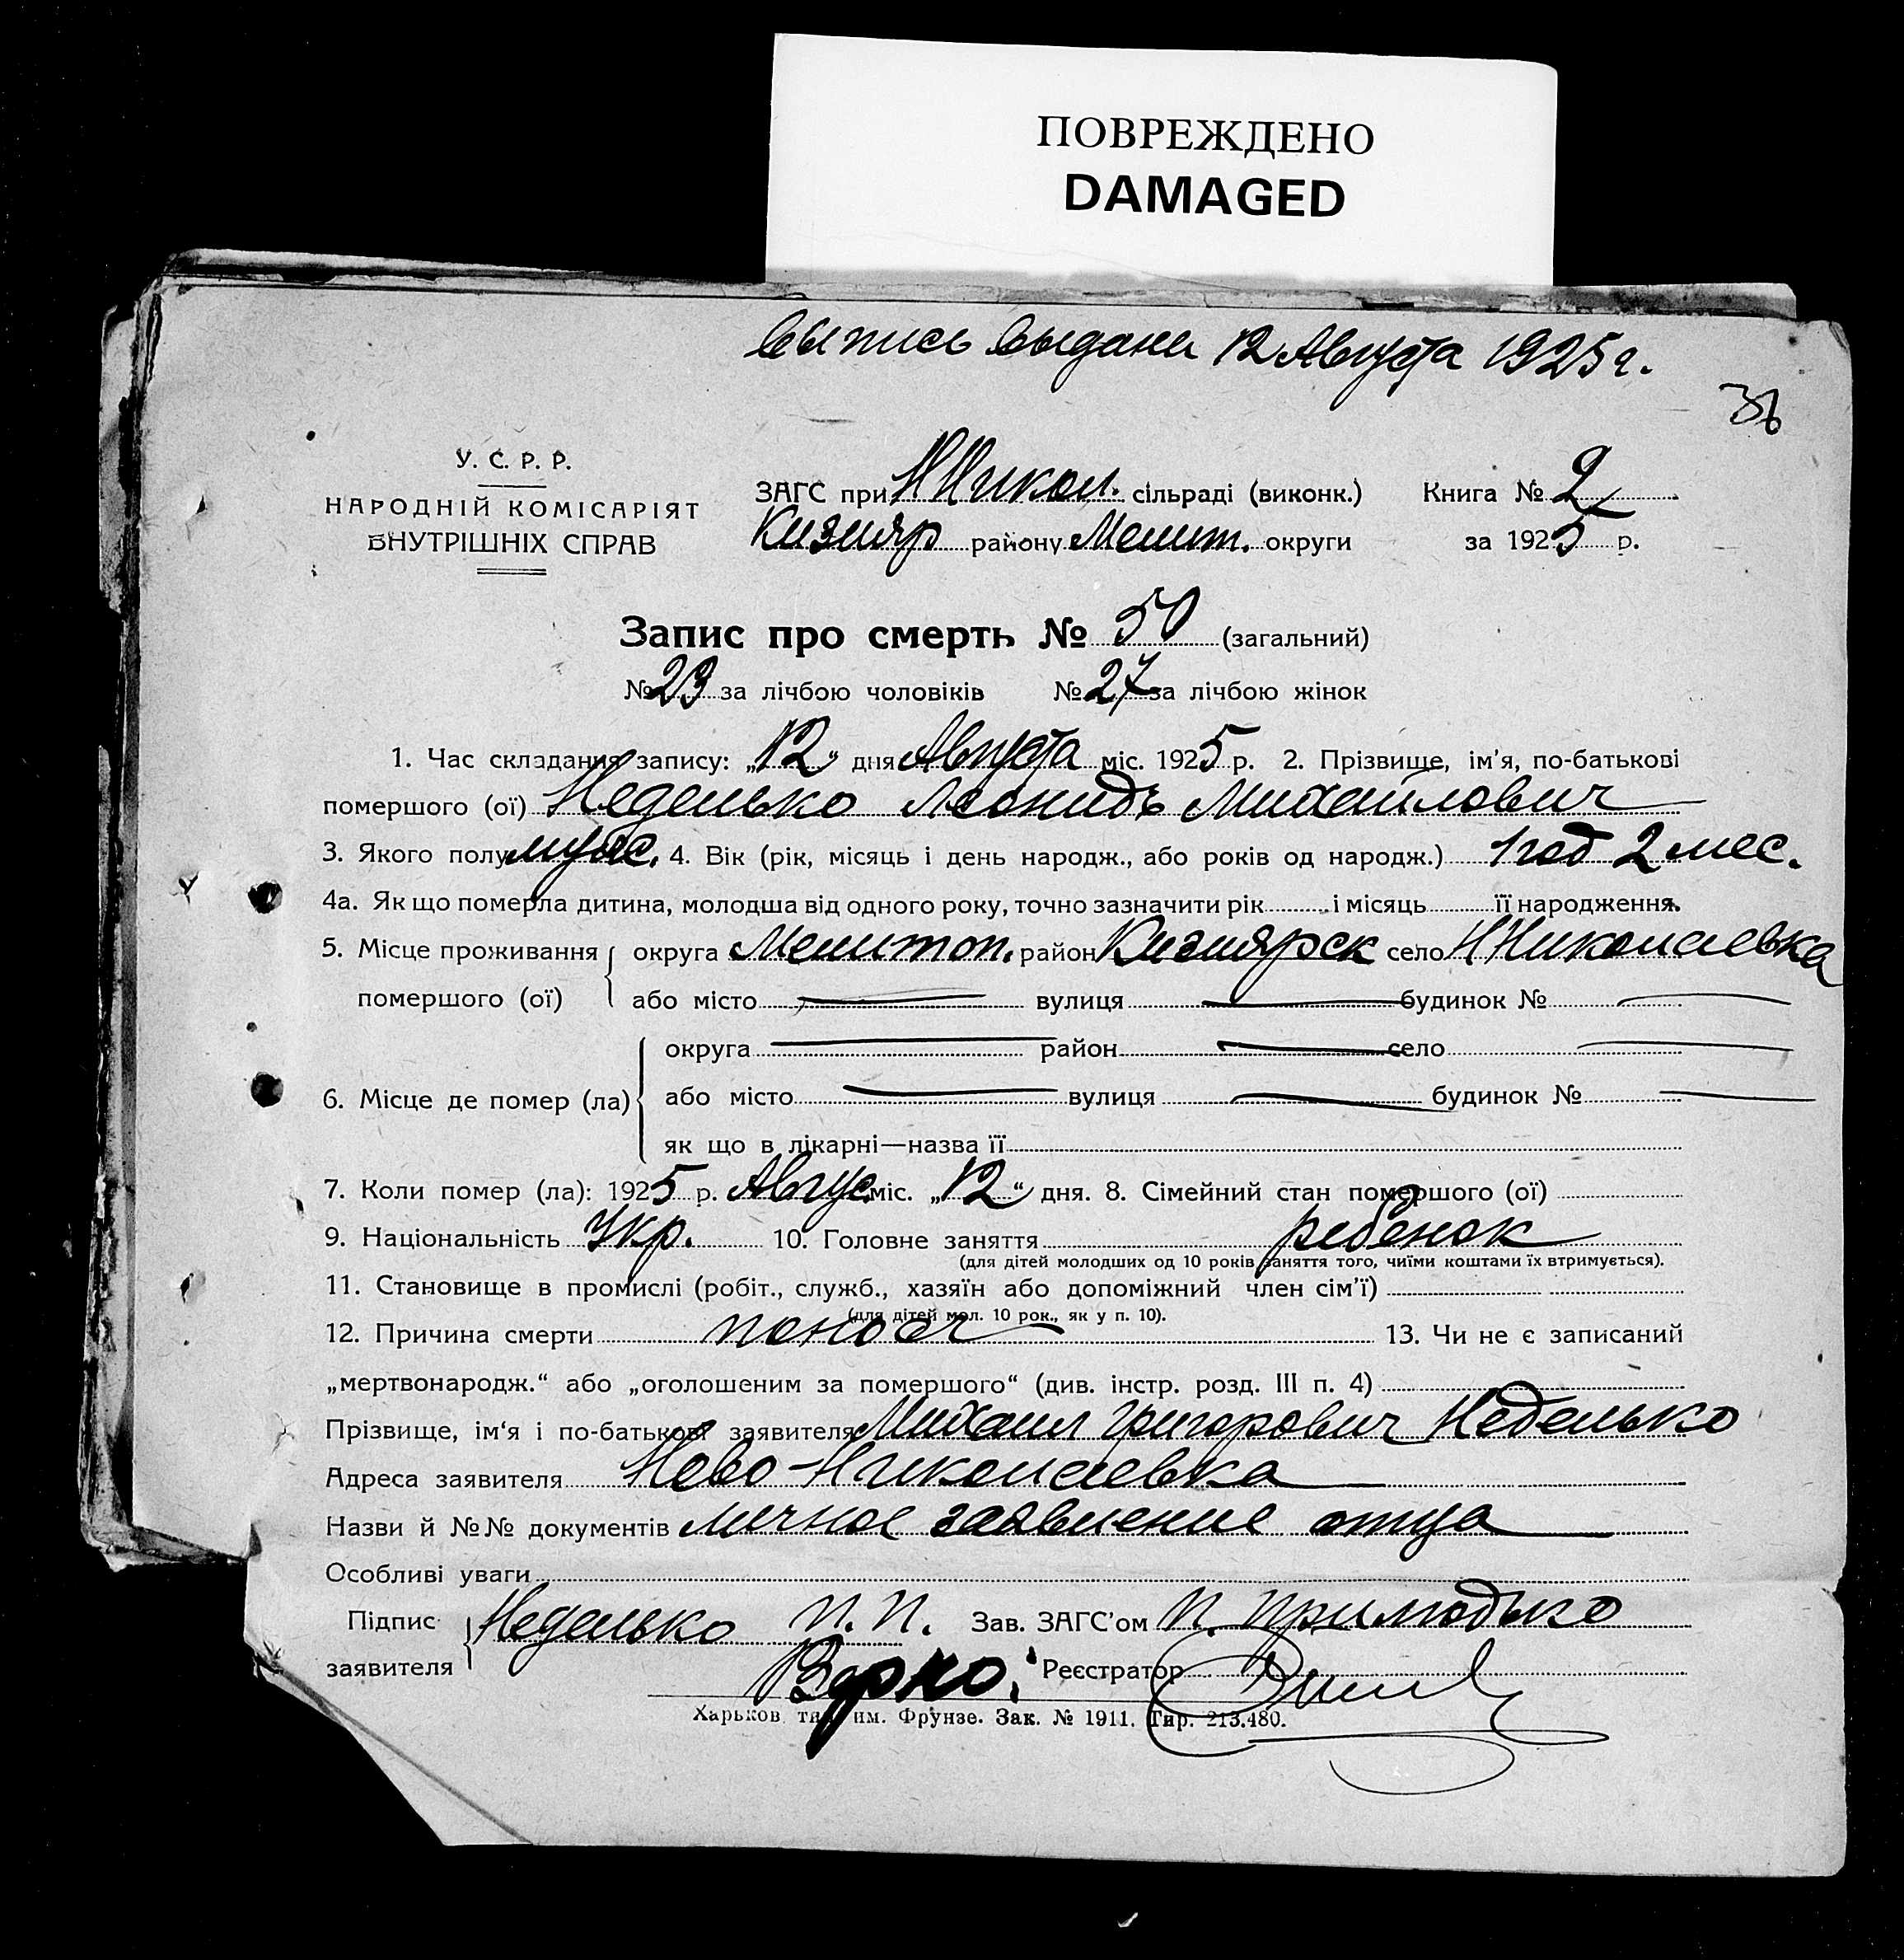 ПОВРЕЖДЕНО
DAMAGED
Выпись выдана 12 Августа 1925 г.
36
У. С. Р. Р.
НАРОДНІЙ КОМІСАРІЯТ
ВНУТРІШНІХ СПРАВ
ЗАГС при Н Никол. сільраді (виконк.) Книга № 2
Кизияр району Мелит. округи за 1925 р.
Запис про смерть № 50 (загальний)
№ 23 за лічбою чоловіків № 27 за лічбою жінок
1. Час складання запису: „12“ дня Августа міс. 1925 р. 2. Прізвище, ім'я, по-батькові
помершого (ої) Неделько Леонидъ Михайлович
3. Якого полу муж. 4. Вік (рік, місяць і день народж., або років од народж.) 1 год 2 мес.
4а. Як що померла дитина, молодша від одного року, точно зазначити рік і місяць її народження.
5. Місце проживання помершого (ої) округа Мелитоп. район Кизиярск село Н Николаевка
або місто вулиця будинок №
округа район село
6. Місце де помер (ла) або місто вулиця будинок №
як що в лікарні—назва її
7. Коли помер (ла): 1925 р. Авгус. міс. „12“ дня. 8. Сімейний стан помершого (ої)
9. Національність Укр. 10. Головне заняття ребенок
(для дітей молодших од 10 років заняття того, чиїми коштами їх втримується).
11. Становище в промислі (робіт., служб., хазяїн або допоміжний член сім'ї)
(для дітей мол. 10 рок., як у п. 10).
12. Причина смерти понос 13. Чи не є записаний
„мертвонародж.“ або „оголошеним за помершого“ (див. інстр. розд. III п. 4)
Прізвище, ім'я і по-батькові заявителя Михаил Григорович Неделько
Адреса заявителя Ново-Николаевка
Назви й №№ документів личное заявление отца
Особливі уваги
Підпис заявителя Неделько П. П. Зав. ЗАГС'ом П. Прилюдько
Верно: Реєстратор
Харьков. тип. им. Фрунзе. Зак. № 1911. Тир. 213.480.